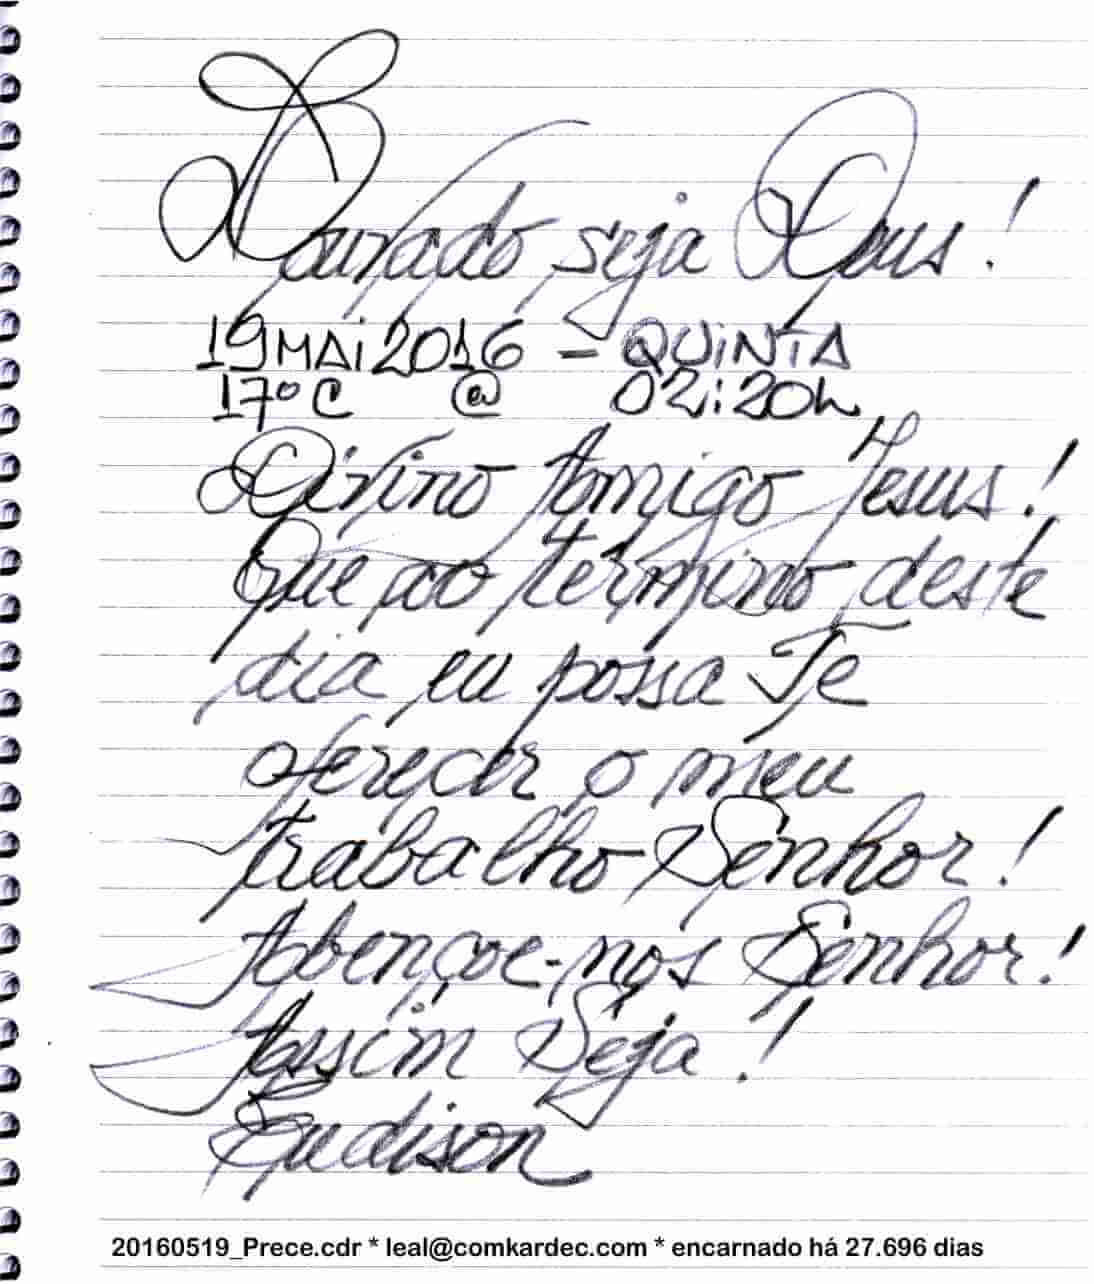 Louvado seja Deus!
19 MAI 2016 - QUINTA
17º C @ 02:20h
Divino Amigo Jesus!
Que ao término deste
dia eu possa Te
oferecer o meu
trabalho Senhor!
Abençoe-nos Senhor!
Assim Seja!
Eudison
20160519_Prece.cdr * leal@comkardec.com * encarnado há 27.696 dias